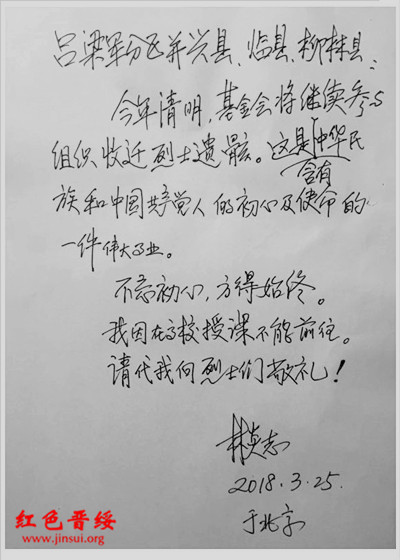 吕梁军分区并兴县、临县、柳林县：
今年清明，基金会将继续参与
组织收迁烈士遗骸。这是中华民
含有
族和中国共产党人的初心及使命的
一件伟大事业。
不忘初心，方得始终。
我因在高校授课不能前往。
请代我向烈士们敬礼！
林炎志
2018.3.25.
于北京
红色晋绥
www.jinsui.org